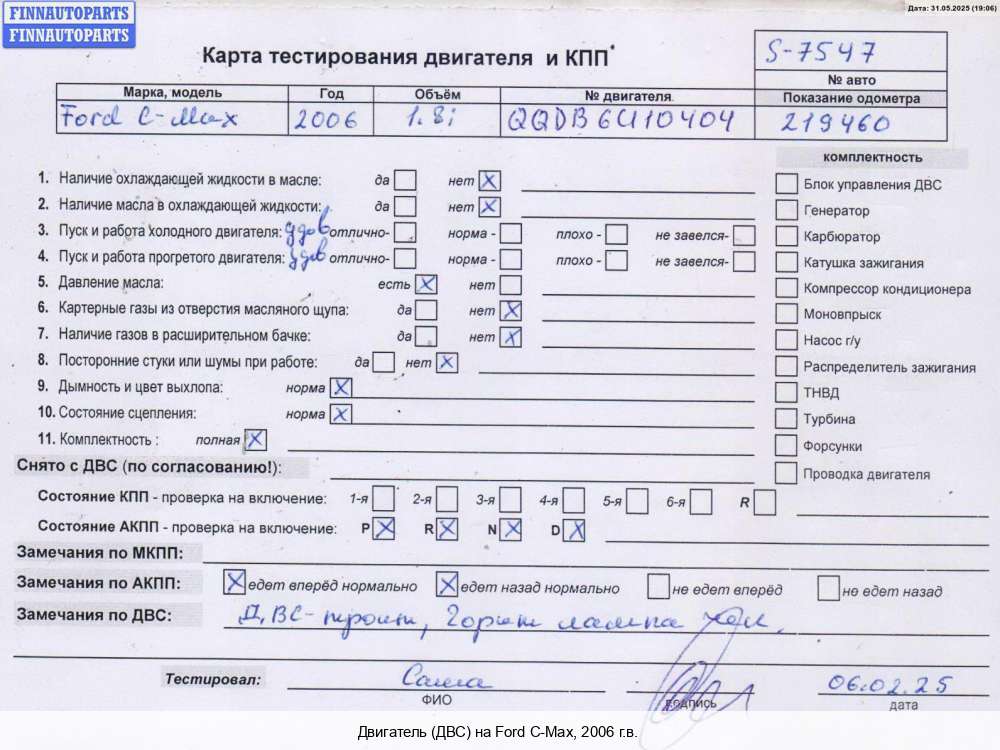 FINNAUTOPARTS
FINNAUTOPARTS
Дата: 31.05.2025 (19:06)
Карта тестирования двигателя и КПП
S-7547
№ авто
Марка, модель Год Объём № двигателя Показание одометра
Ford C-Max 2006 1.8i QQDB6U10404 219460
комплектность
1. Наличие охлаждающей жидкости в масле: да нет X
Блок управления ДВС
2. Наличие масла в охлаждающей жидкости: да нет X
Генератор
3. Пуск и работа холодного двигателя: удов отлично- норма - плохо - не завелся-
Карбюратор
4. Пуск и работа прогретого двигателя: удов отлично- норма - плохо - не завелся-
Катушка зажигания
5. Давление масла: есть X нет
Компрессор кондиционера
6. Картерные газы из отверстия масляного щупа: да нет X
Моновпрыск
7. Наличие газов в расширительном бачке: да нет X
Насос г/у
8. Посторонние стуки или шумы при работе: да нет X
Распределитель зажигания
9. Дымность и цвет выхлопа: норма X
ТНВД
10. Состояние сцепления: норма X
Турбина
11. Комплектность : полная X
Форсунки
Снято с ДВС (по согласованию!):
Проводка двигателя
Состояние КПП - проверка на включение: 1-я 2-я 3-я 4-я 5-я 6-я R
Состояние АКПП - проверка на включение: P X R X N X D X
Замечания по МКПП:
Замечания по АКПП: X едет вперёд нормально X едет назад нормально не едет вперёд не едет назад
Замечания по ДВС: ДВС-троит, Горит лампа
Тестировал: Саша 06.02.25
ФИО подпись дата
Двигатель (ДВС) на Ford C-Max, 2006 г.в.